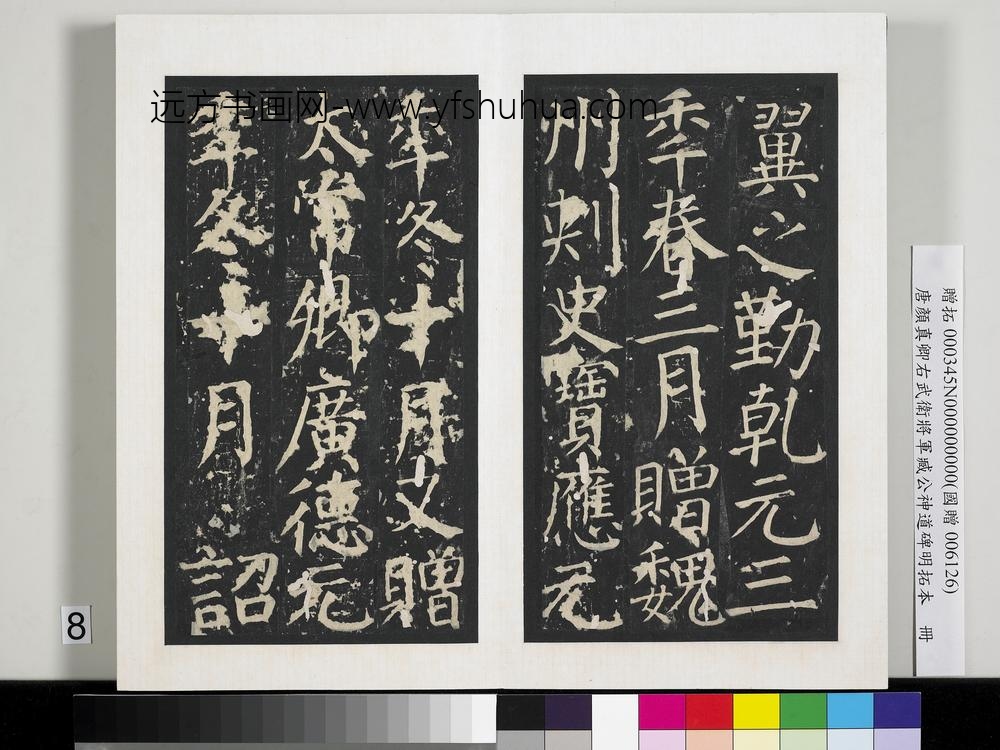 远方书画网-www.yfshuhua.com
翼之勤乾元三
秊春三月贈魏
州刾史寶應元
年冬十月又贈
太常卿廣德元
年冬十月詔
贈拓 000345N000000000(國贈 006126)
唐顏真卿右武衛將軍臧公神道碑明拓本 冊
8